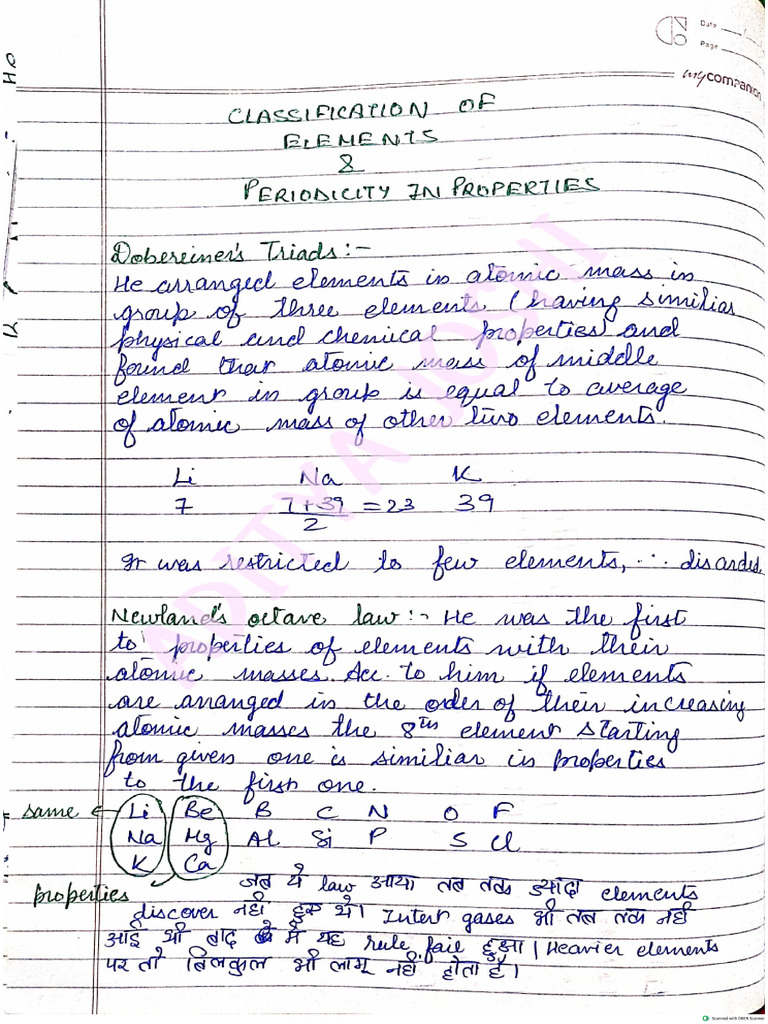 Date
Page
mycompanion
CLASSIFICATION OF
ELEMENTS
&
PERIODICITY IN PROPERTIES
Dobereiner's Triads:-
He arranged elements in atomic mass in
group of three elements (having similiar
physical and chemical properties) and
found that atomic mass of middle
element in group is equal to average
of atomic mass of other two elements.
Li Na K
7 7+39/2 = 23 39
It was restricted to few elements, ∴ disarded.
Newland's octave law:- He was the first
to properties of elements with their
atomic masses. Acc. to him if elements
are arranged in the order of their increasing
atomic masses the 8th element starting
from given one is similiar in properties
to the first one.
same ← Li Be B C N O F
Na Mg Al Si P S Cl
K Ca
properties
जब ये law आया तब तक ज्यादा elements
discover नही हुए थे। Intert gases भी तब तक नही
आई थी बाद मे यह rule fail हुआ। Heavier elements
पर तो बिलकुल भी लागू नही होता है।
ADITYA JOSHI
Scanned with OKEN Scanner